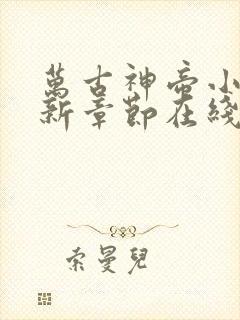 萬古神帝小
新章節在綫
索曼兒